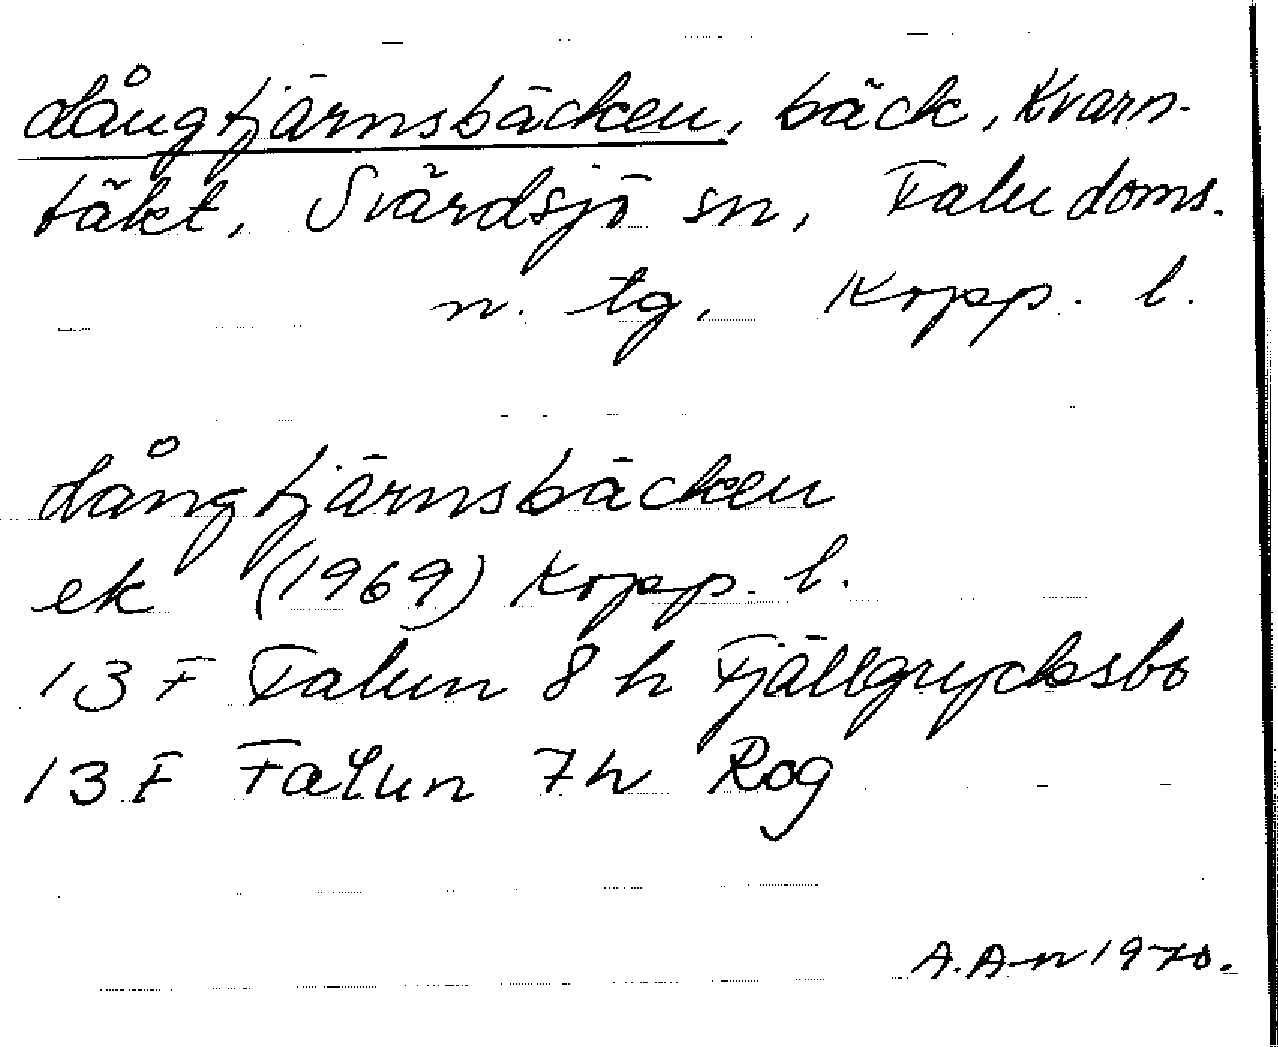 Långtjärnsbäcken, bäck, Kvarn-
täkt, Svärdsjö sn, Falu doms.
n. tg, Kopp. l.
Långtjärnsbäcken
ek (1969) Kopp. l.
13 F Falun 8 h Fjällgrycksbo
13 F Falun 7 h Rog
A. A-n 1970.